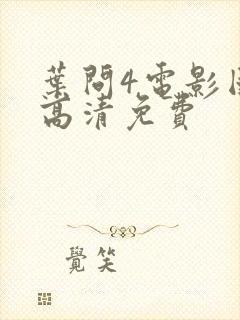 葉問4電影
高清免費
覺笑